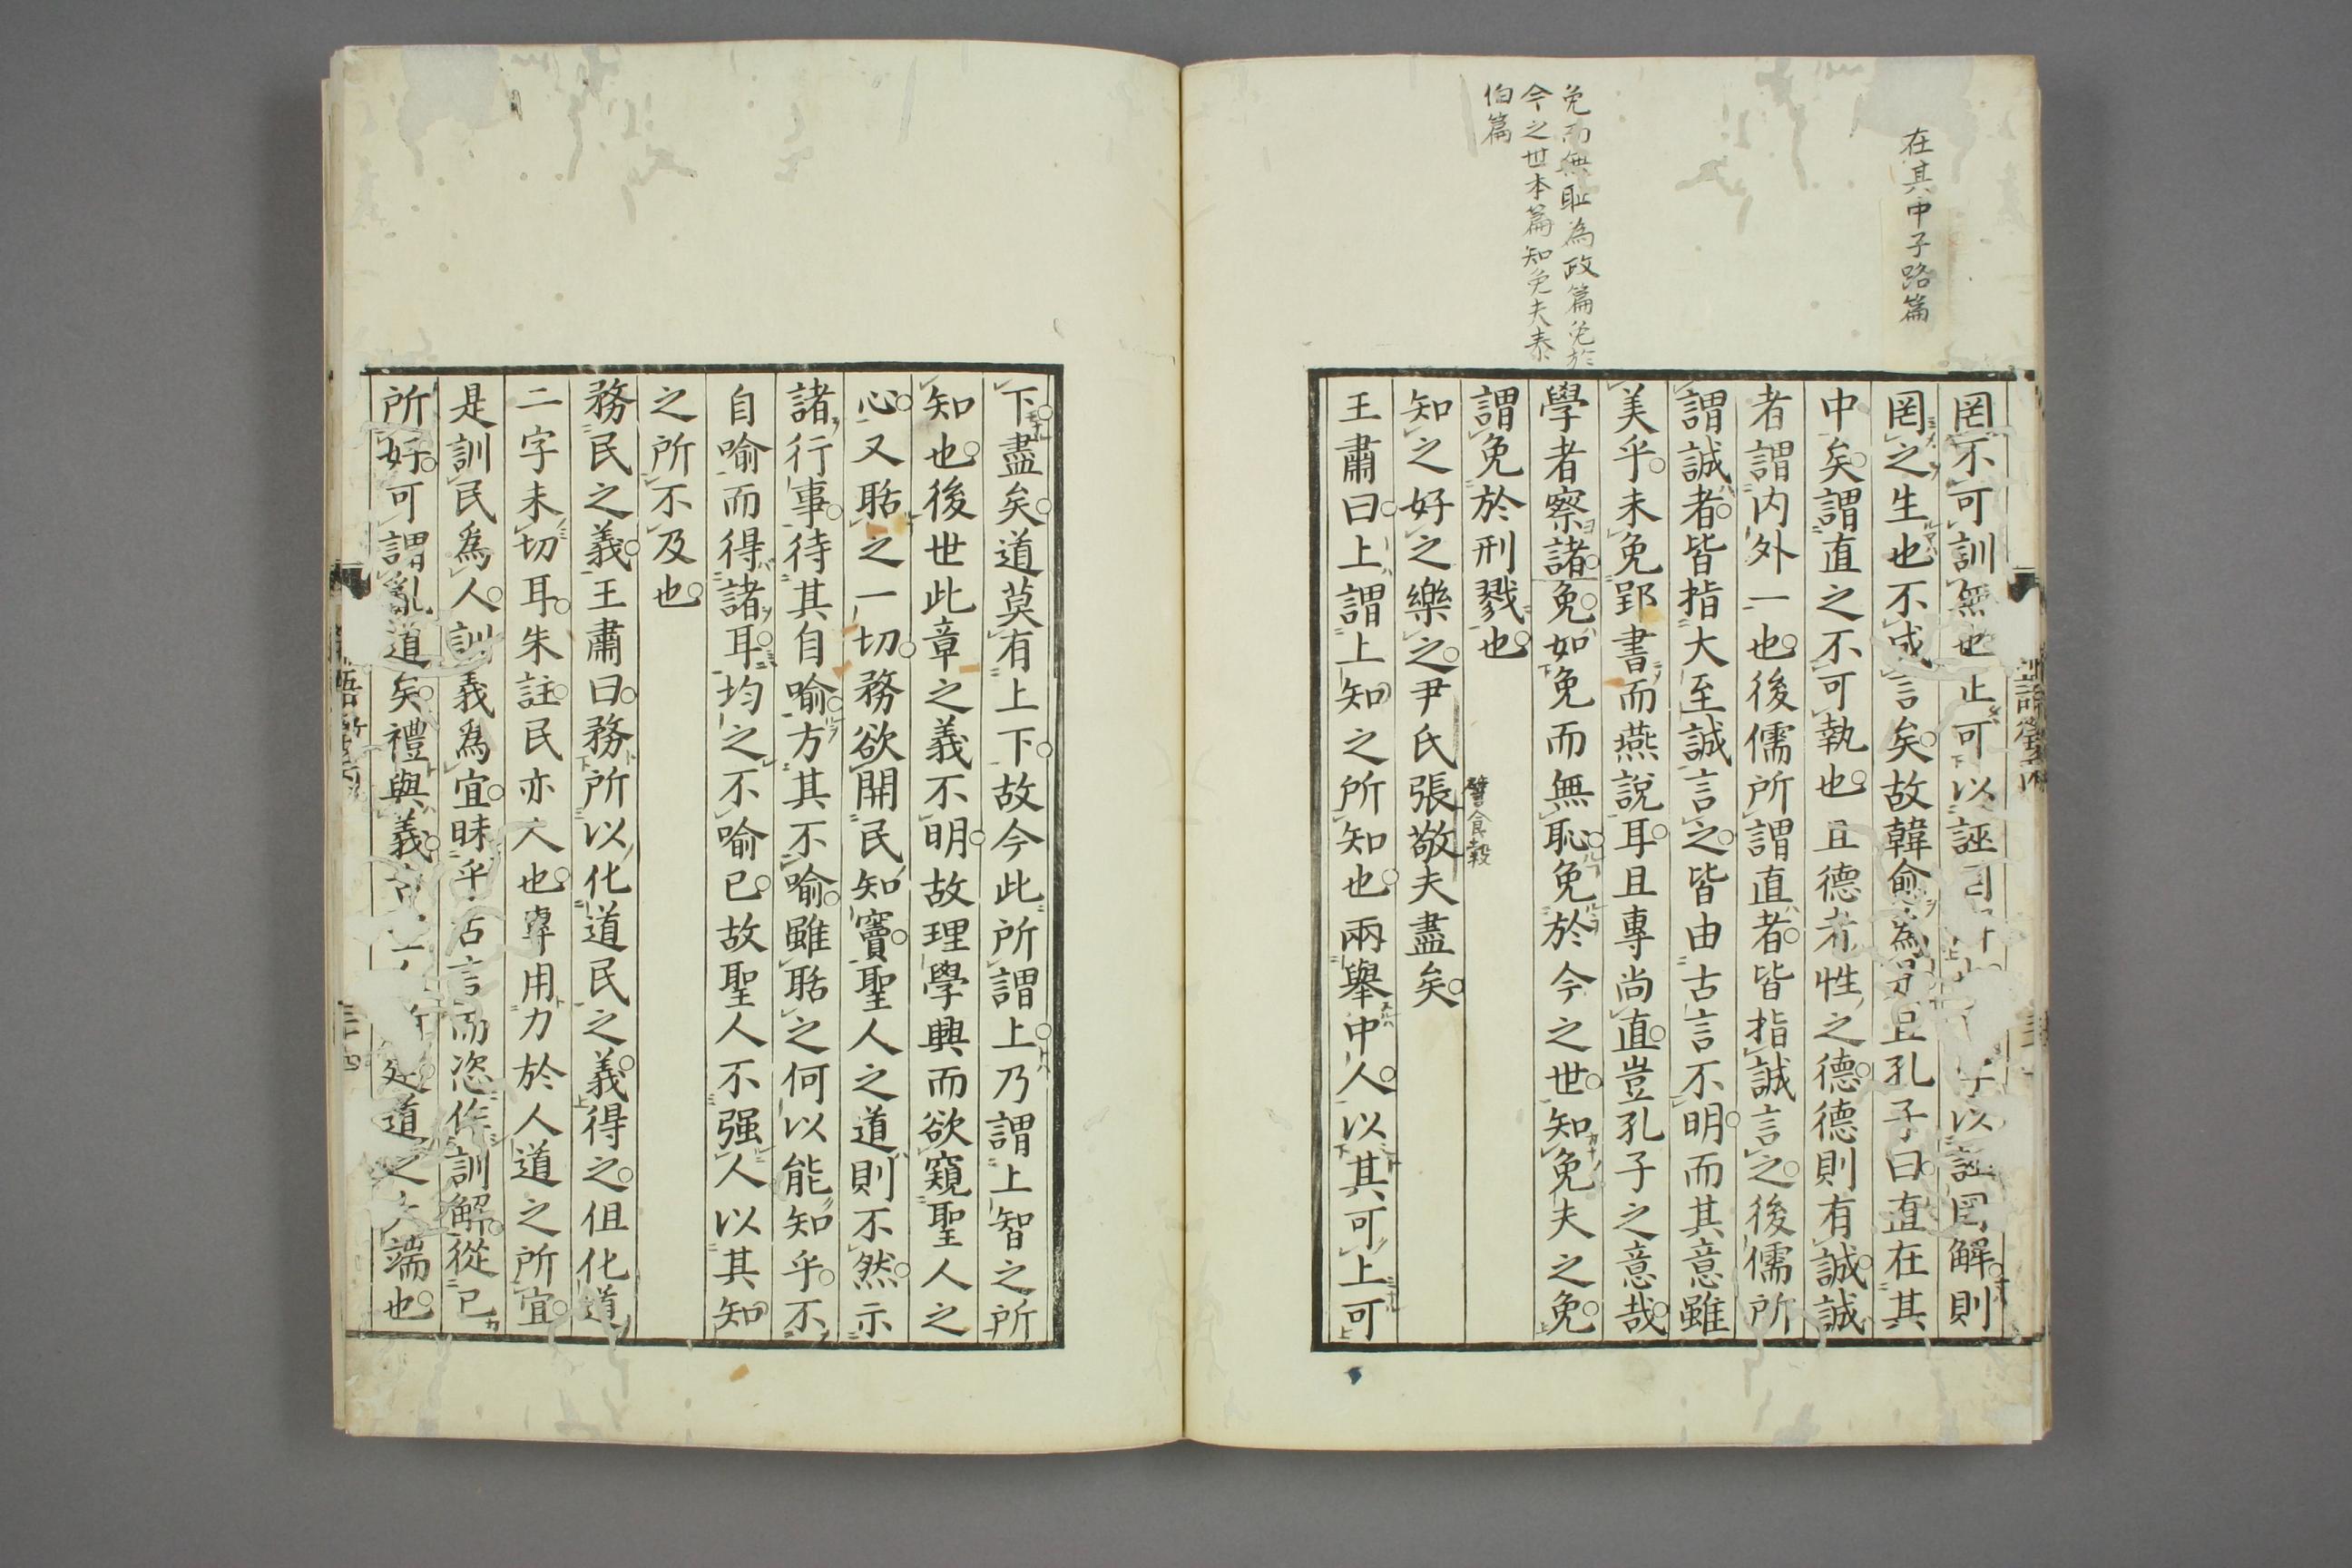 在其中子路篇
免而無恥為政篇免於
今之世本篇知免夫泰
伯篇
罔不可訓無也止可以誣罔解則
罔之生也不成言矣故韓愈為且孔子曰直在其
中矣謂直之不可執也且德者性之德德則有誠誠
者謂内外一也後儒所謂直者皆指誠言之後儒所
謂誠者皆指大至誠言之皆由古言不明而其意雖
美乎未免郢書而燕說耳且專尚直豈孔子之意哉
學者察諸免如免而無恥免於今之世知免夫之免
謂免於刑戮也
譬食穀
知之好之樂之尹氏張敬夫盡矣
王肅曰上謂上知之所知也兩舉中人以其可上可
下盡矣道莫有上下故今此所謂上乃謂上智之所
知也後世此章之義不明故理學興而欲窺聖人之
心又聒之一切務欲開民知竇聖人之道則不然示
諸行事待其自喻方其不喻雖聒之何以能知乎不
自喻而得諸耳均之不喻已故聖人不强人以其知
之所不及也
務民之義王肅曰務所以化道民之義得之但化道
二字未切耳朱註民亦人也專用力於人道之所宜
是訓民爲人訓義爲宜昧乎古言而恣作訓解從己
所好可謂亂道矣禮與義道之大端也